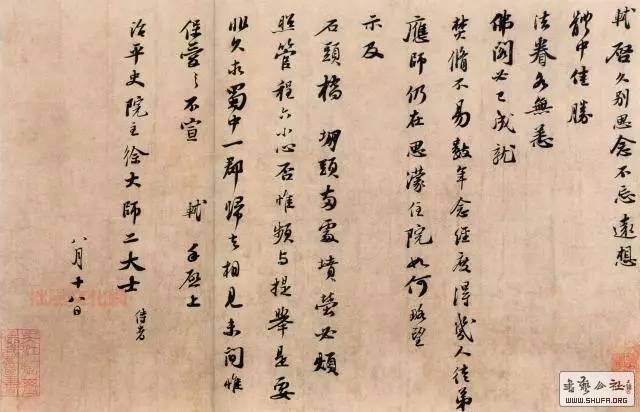 軾啓久別思念不忘遠想
體中佳勝
法眷各無恙
佛閣必已成就
焚脩不易數年念經度得幾人徒弟
應師仍在思濛住院如何略望
示及
石頭橋堋頭兩處墳塋必煩
照管程六小心否惟頻与提舉是要
非久求蜀中一郡歸去相見未間惟
保愛之不宣 軾手啓上
治平史院主徐大師二大士侍者
八月十八日
書藝公社
WWW.SHUFA.ORG